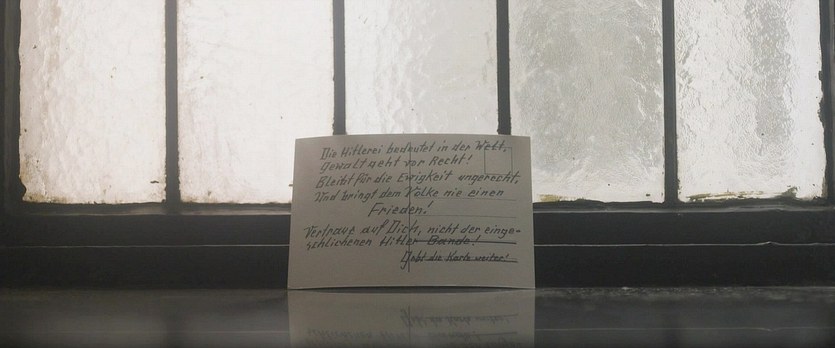 Die Hitlerei bedeutet in der Welt,
Gewalt geht vor Recht!
Bleibt für die Ewigkeit ungerecht,
Und bringt dem Volke nie einen
Frieden!
Vertraue auf Dich, nicht der einge-
schlichenen Hitler Bande!
Gebt die Karte weiter!